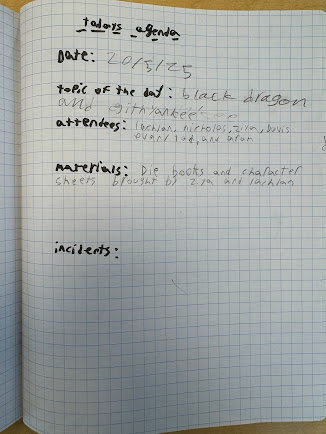 todays agenda
Date: 20/5/25
topic of the day: black dragon
and githyankee
attendees: lachlan, nicholas, zira,
and
materials: Die books and character
sheets brought by zira and lachlan
incidents: